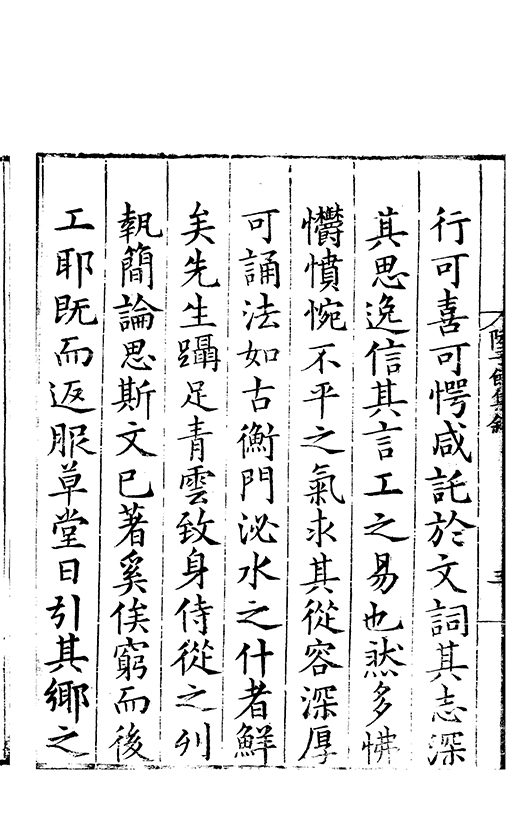 陸子餘集敘
三
行可喜可愕咸託於文詞其志深
其思逸信其言工之易也然多怫
欝憤惋不平之氣求其從容深厚
可誦法如古衡門泌水之什者鮮
矣先生躡足青雲致身侍從之列
執簡論思斯文已著奚俟窮而後
工耶既而返服草堂日引其鄉之